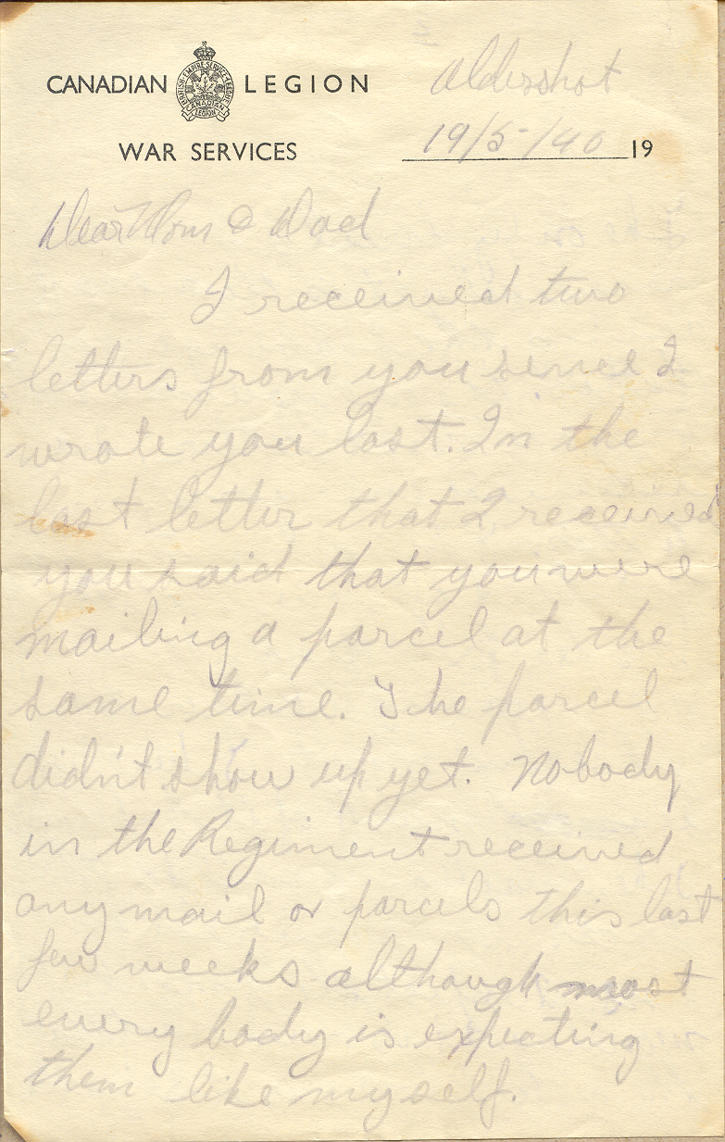 CANADIAN LEGION
WAR SERVICES
Aldershot
19/5/40 19
Dear Mom & Dad
I received two
letters from you since I
wrote you last. In the
last letter that I received
you said that you were
mailing a parcel at the
same time. The parcel
didn't show up yet. Nobody
in the Regiment received
any mail or parcels this last
few weeks although most
every body is expecting
them like myself.